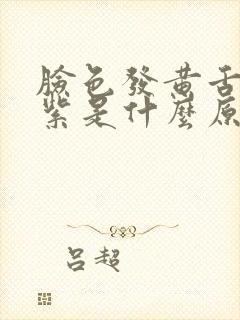 臉色發黄舌
紫是什麼原
吕超